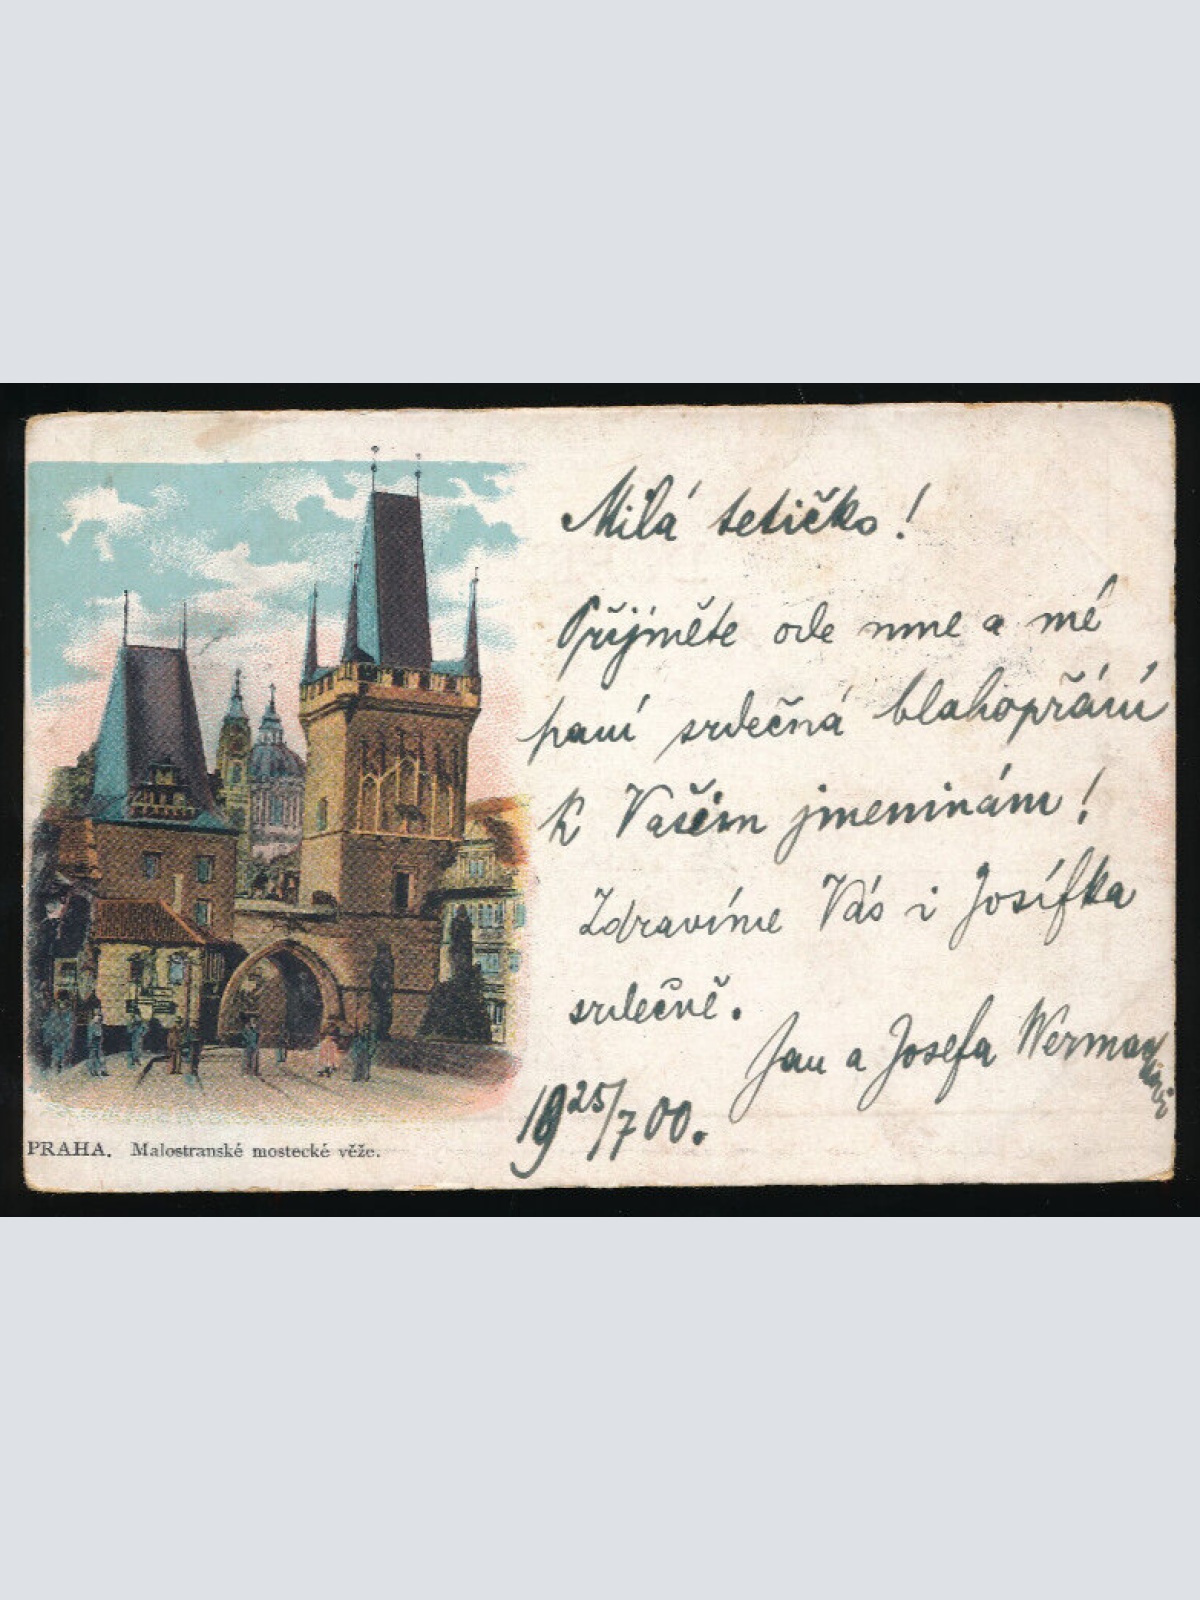 Milá tetičko!
Přijměte ode mne a mé
paní srdečná blahopřání
k Vašim jmeninám!
Zdravíme Vás i Josífka
srdečně.
Jan a Josefa
19 25/7 00.
PRAHA. Malostranské mostecké věže.